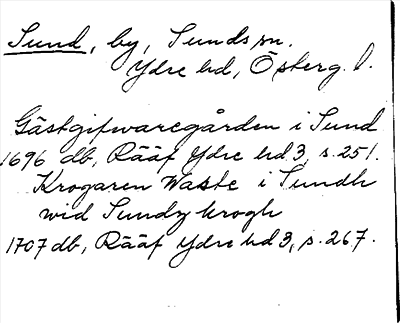 Sund, by, Sunds sn.
Ydre hd, Österg. l.
Gästgifwaregården i Sund
1696 db, Rääf Ydre hd 3, s. 251.
Krogaren Waste i Sundh
wid Sundz krogh
1707 db, Rääf Ydre hd 3, s. 267.